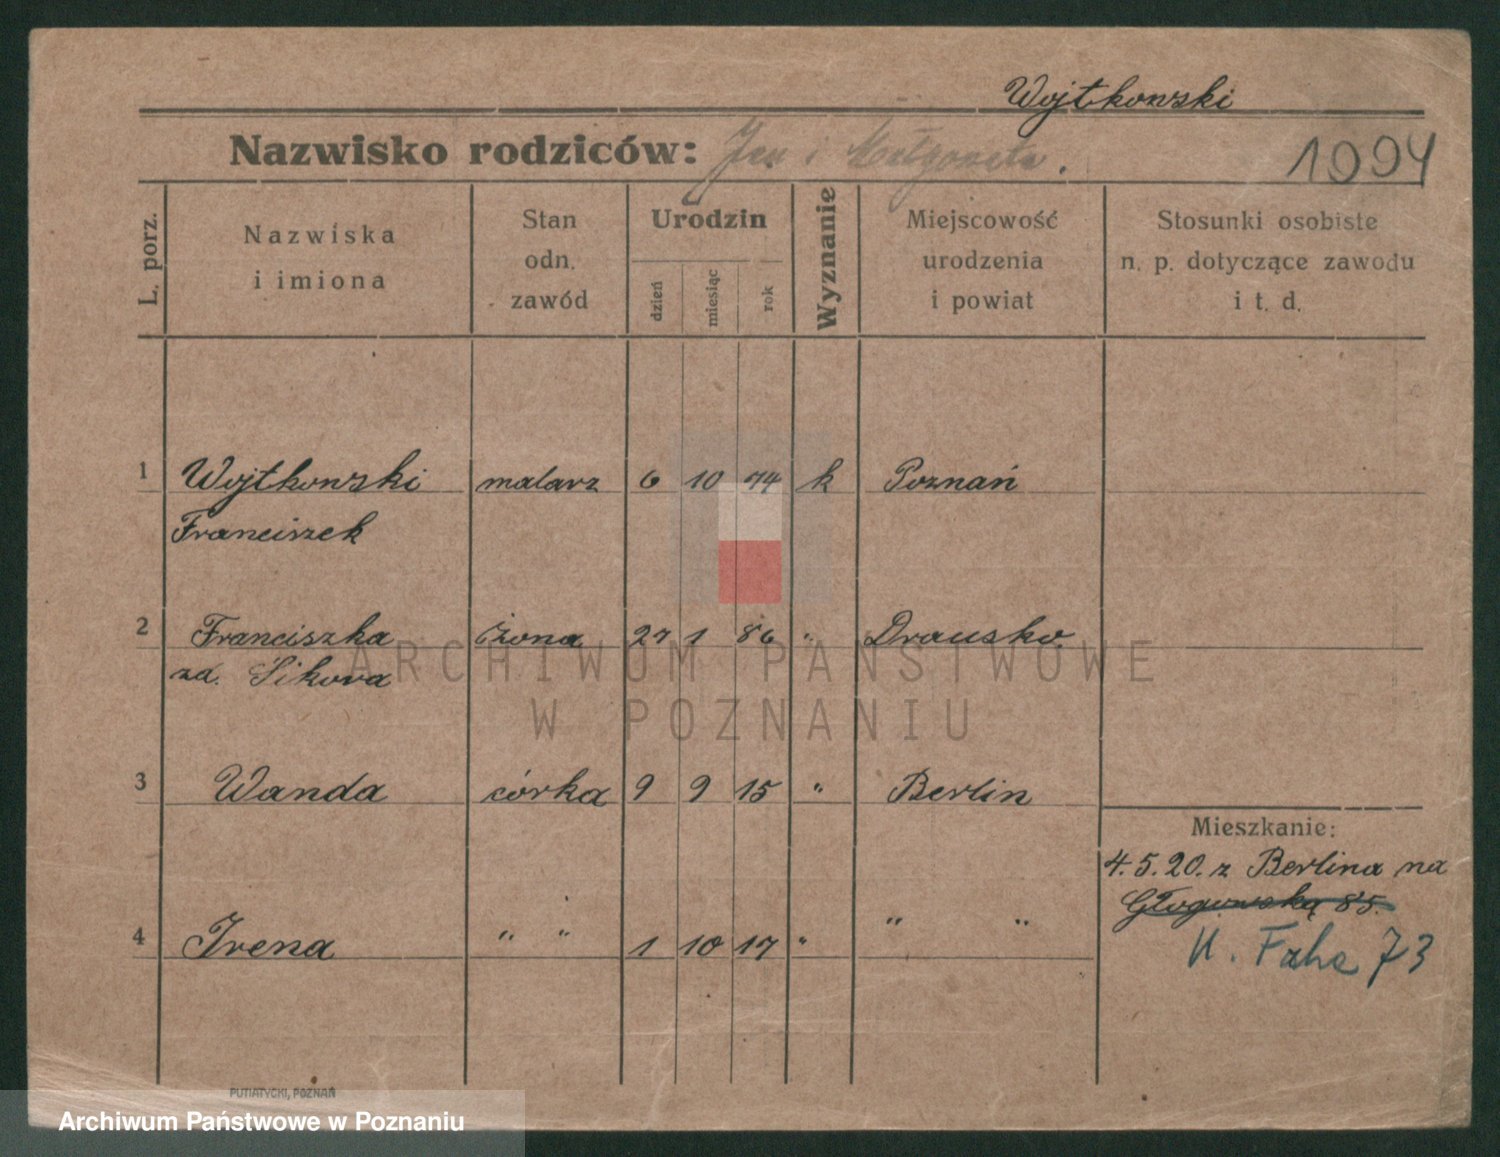 Wojtkowski
Nazwisko rodziców: Jan i Małgorzata.
1994
L. porz.
Nazwiska
i imiona
Stan
odn.
zawód
Urodzin
dzień
miesiąc
rok
Wyznanie
Miejscowość
urodzenia
i powiat
Stosunki osobiste
n. p. dotyczące zawodu
i t. d.
1 Wojtkowski malarz 6 10 74 k Poznań
Franciszek
2 Franciszka żona 27 1 86 " Drausko
zd. Sikora
3 Wanda córka 9 9 15 " Berlin
4 Irena " " 1 10 17 " " "
Mieszkanie:
4. 5. 20. z Berlina na
Głogowską 85.
73
ARCHIWUM PAŃSTWOWE
W POZNANIU
PUTIATYCKI, POZNAŃ
Archiwum Państwowe w Poznaniu